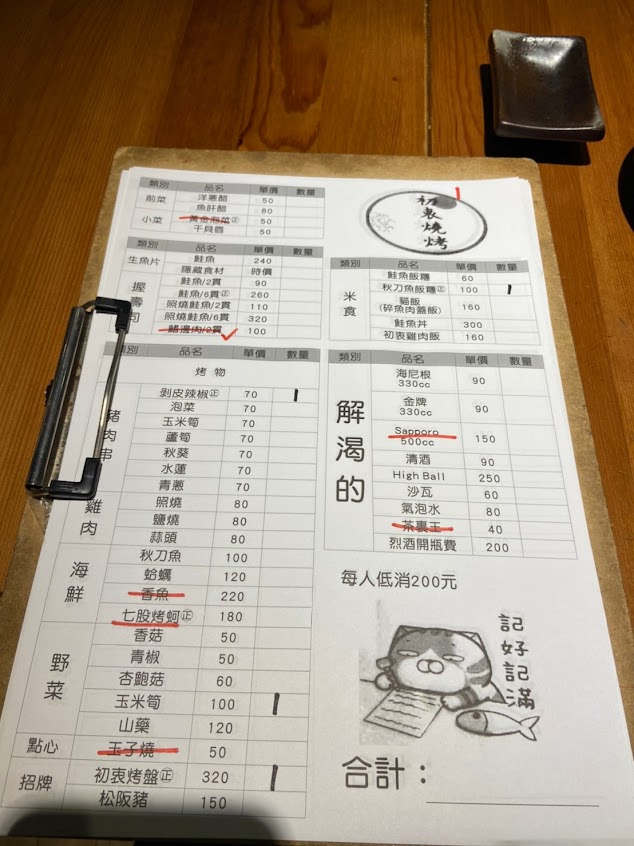 類別 品名 單價 數量
前菜 洋蔥醋 50
魚肝醋 80
小菜 黃金泡菜㊣ 50
干貝唇 50
初衷燒烤
類別 品名 單價 數量
生魚片 鮭魚 240
隱藏食材 時價
握壽司 鮭魚/2貫 90
鮭魚/6貫㊣ 260
照燒鮭魚/2貫 110
照燒鮭魚/6貫 320
鰭邊肉/2貫 100
類別 品名 單價 數量
烤 物
豬肉串 剝皮辣椒㊣ 70
泡菜 70
玉米筍 70
蘆筍 70
秋葵 70
水蓮 70
青蔥 70
雞肉 照燒 80
鹽燒 80
蒜頭 80
海鮮 秋刀魚 100
蛤蠣 120
香魚 220
七股烤蚵㊣ 180
野菜 香菇 50
青椒 50
杏鮑菇 60
玉米筍 100
山藥 120
點心 玉子燒 50
招牌 初衷烤盤㊣ 320
松阪豬 150
類別 品名 單價 數量
米食 鮭魚飯糰 60
秋刀魚飯糰㊣ 100
貓飯
(碎魚肉蓋飯) 160
鮭魚丼 300
初衷雞肉飯 160
類別 品名 單價 數量
解渴的 海尼根
330cc 90
金牌
330cc 90
Sapporo
500cc 150
清酒 90
High Ball 250
沙瓦 60
氣泡水 80
茶裏王 40
烈酒開瓶費 200
每人低消200元
記好記滿
合計：